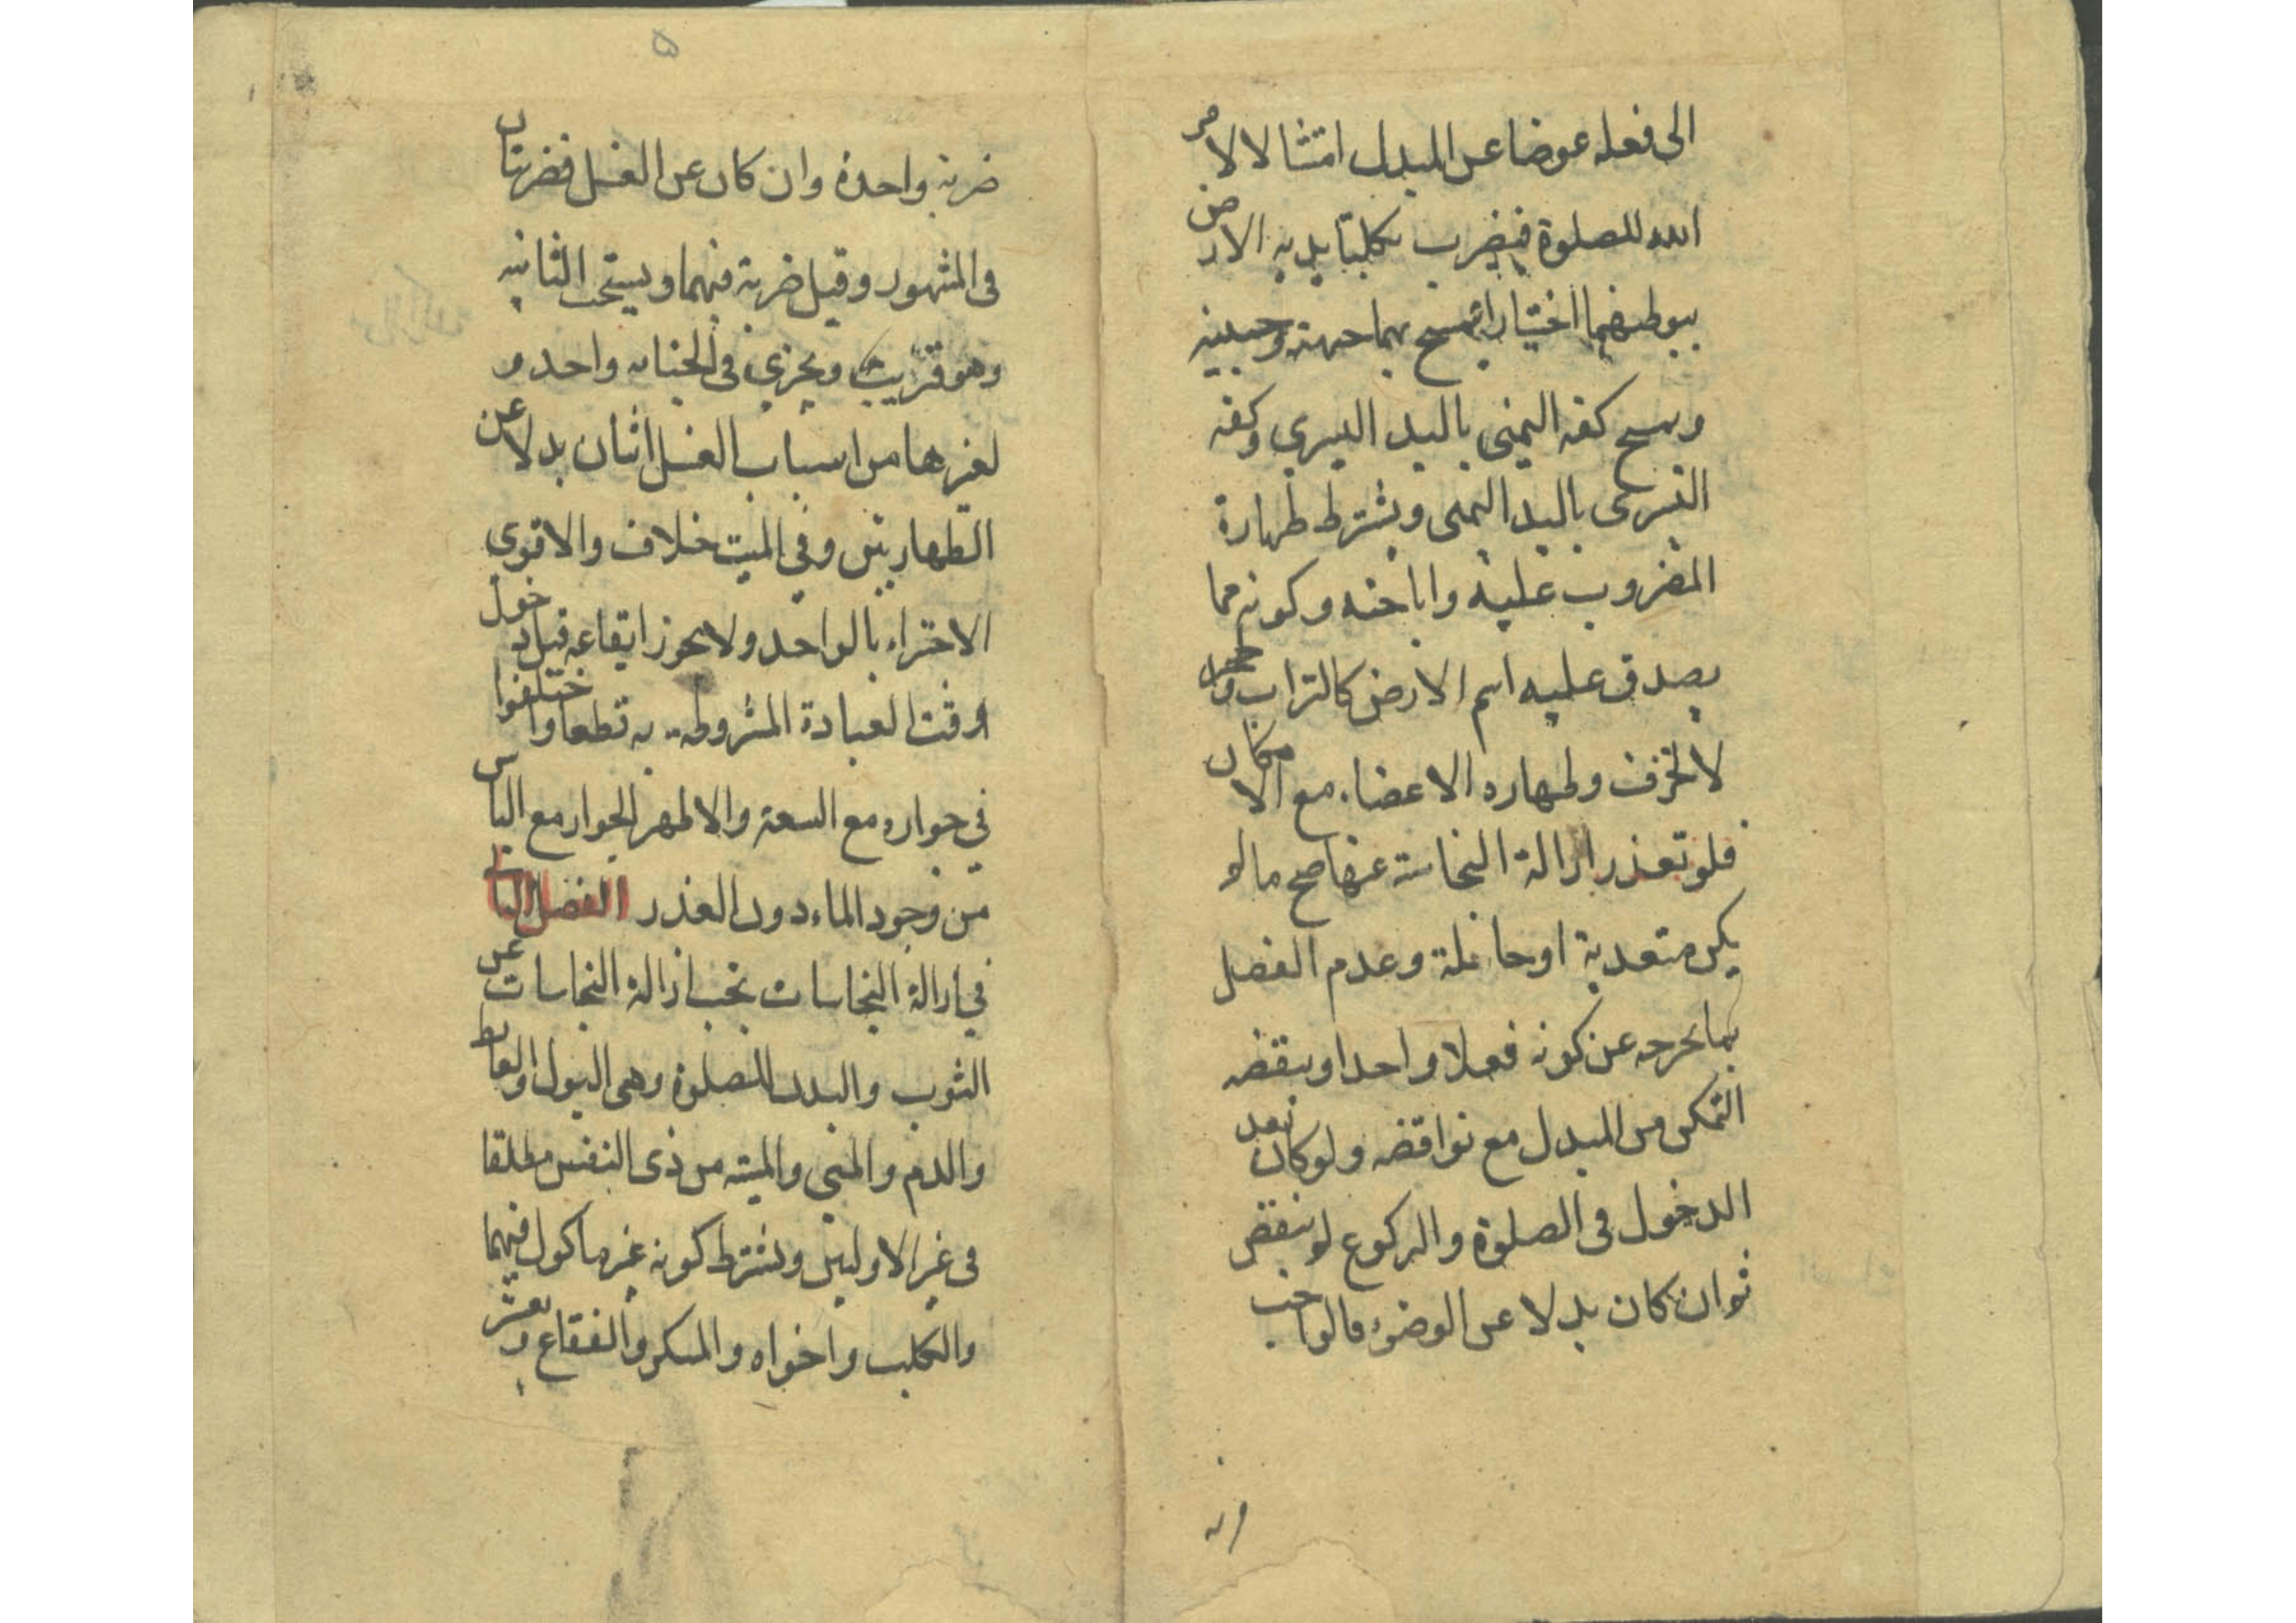 الى فعله عوضا عن المبدل امتثالا لامر
الله للصلوة فيضرب بكلتا يديه الارض
ببوطنهما اختيارا ثم يمسح بهما جبهته وجبينيه
ويمسح كفه اليمنى باليد اليسرى وكفه
اليسرى باليد اليمنى ويشترط طهارة
المضروب عليه واباحته وكونه مما
يصدق عليه اسم الارض كالتراب وحجر
لا لخزف وطهاره الاعضاء مع الامكان
فلو تعذر ازالة النجاسة عنها صح ما لم
يكن متعدية او حائلة وعدم الفصل
بما يخرجه عن كونه فعلا واحدا وينقضه
التمكن من المبدل مع نواقضه ولو كان بعد
الدخول فى الصلوة والركوع لم ينقض
ثم ان كان بدلا عن الوضوء فالواجب
۵
ضربة واحدة وان كان عن الغسل فضربتان
فى المشهور وقيل ضربة فيهما ويستحب الثانيه
وهو قريب ويجزي فى الجنابه واحد و
لغيرها من اسباب الغسل اثنان بدلا عن
الطهارتين وفي الميت خلاف والاقوى
الاجتزاء بالواحد ولا يجوز ايقاعه قبل دخول
وقت العبادة المشروطه به قطعا واختلفوا
في جوازه مع السعة والاظهر الجواز مع الياس
من وجود الماء دون العذر الفصل الثانى
في ازالة النجاسات تجب ازالة النجاسات عن
الثوب والبدن للصلوة وهى البول والغايط
والدم والمنى والميته من ذى النفس مطلقا
فى غير الاوليين ويشترط كونه غير ماكول فيهما
والكلب واخواه والمسكر والفقاع و